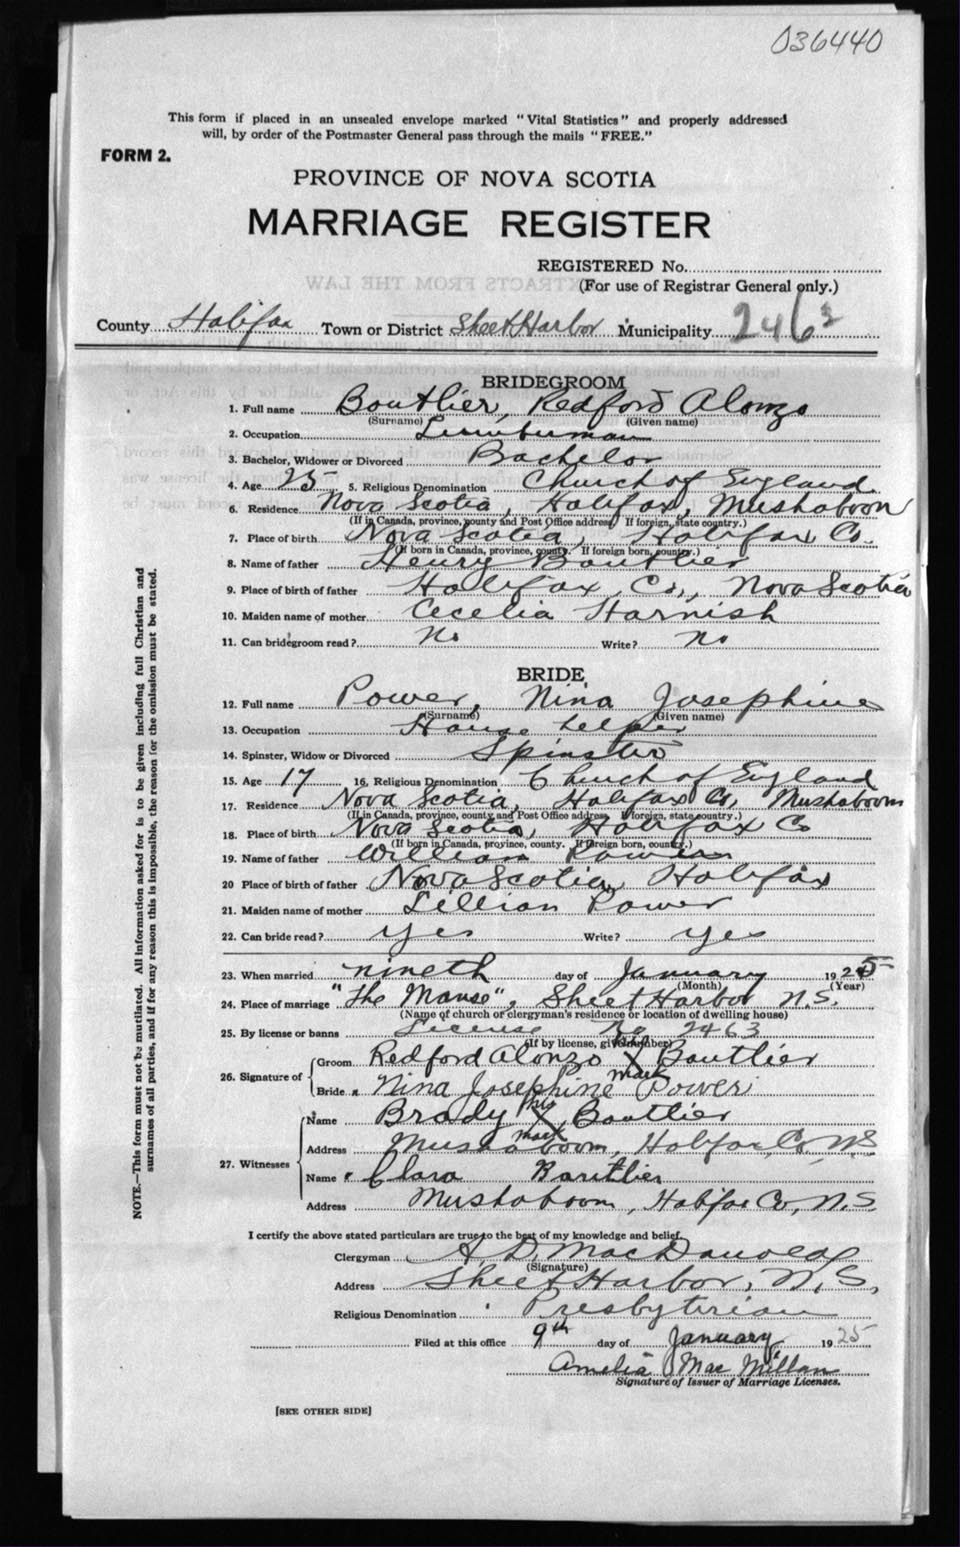 036440
This form if placed in an unsealed envelope marked "Vital Statistics" and properly addressed
will, by order of the Postmaster General pass through the mails "FREE."
FORM 2.
PROVINCE OF NOVA SCOTIA
MARRIAGE REGISTER
REGISTERED No.
(For use of Registrar General only.)
County Halifax Town or District Sheet Harbor Municipality 2463
BRIDEGROOM
1. Full name Boutlier, Redford Alonzo
(Surname) (Given name)
2. Occupation Lumberman
3. Bachelor, Widower or Divorced Bachelor
4. Age 25 5. Religious Denomination Church of England
6. Residence Nova Scotia, Halifax, Mushaboon
(If in Canada, province, county and Post Office address. If foreign, state country.)
7. Place of birth Nova Scotia, Halifax Co.
(If born in Canada, province, county. If foreign born, country.)
8. Name of father Henry Boutlier
9. Place of birth of father Halifax Co., Nova Scotia
10. Maiden name of mother Cecelia Harnish
11. Can bridegroom read? No Write? no
BRIDE
12. Full name Power, Nina Josephine
(Surname) (Given name)
13. Occupation House helper
14. Spinster, Widow or Divorced Spinster
15. Age 17 16. Religious Denomination Church of England
17. Residence Nova Scotia, Halifax Co, Mushaboom
(If in Canada, province, county and Post Office address. If foreign, state country.)
18. Place of birth Nova Scotia, Halifax Co
(If born in Canada, province, county. If foreign born, country.)
19. Name of father William
20 Place of birth of father Nova Scotia, Halifax
21. Maiden name of mother Lillian Power
22. Can bride read? yes Write? yes
23. When married nineth day of January 1925
(Month) (Year)
24. Place of marriage "The Manse", Sheet Harbor N.S.
(Name of church or clergyman's residence or location of dwelling house)
25. By license or banns License No 2463
(If by license, give number)
his
26. Signature of Groom Redford Alonzo X Boutlier
mark
Bride Nina Josephine Power
his
27. Witnesses Name Brady X Boutlier
mark
Address Mushaboom, Halifax, Co, N.S
Name Clara Boutlier
Address Mushaboom, Halifax Co, N.S
I certify the above stated particulars are true to the best of my knowledge and belief.
Clergyman A. D. MacDonald
(Signature)
Address Sheet Harbor, N.S,
Religious Denomination Presbyterian
Filed at this office 9th day of January 1925
Amelia MacMillan
Signature of Issuer of Marriage Licenses.
[SEE OTHER SIDE]
NOTE.—This form must not be mutilated. All information asked for is to be given including full Christian and
surnames of all parties, and if for any reason this is impossible, the reason for the omission must be stated.